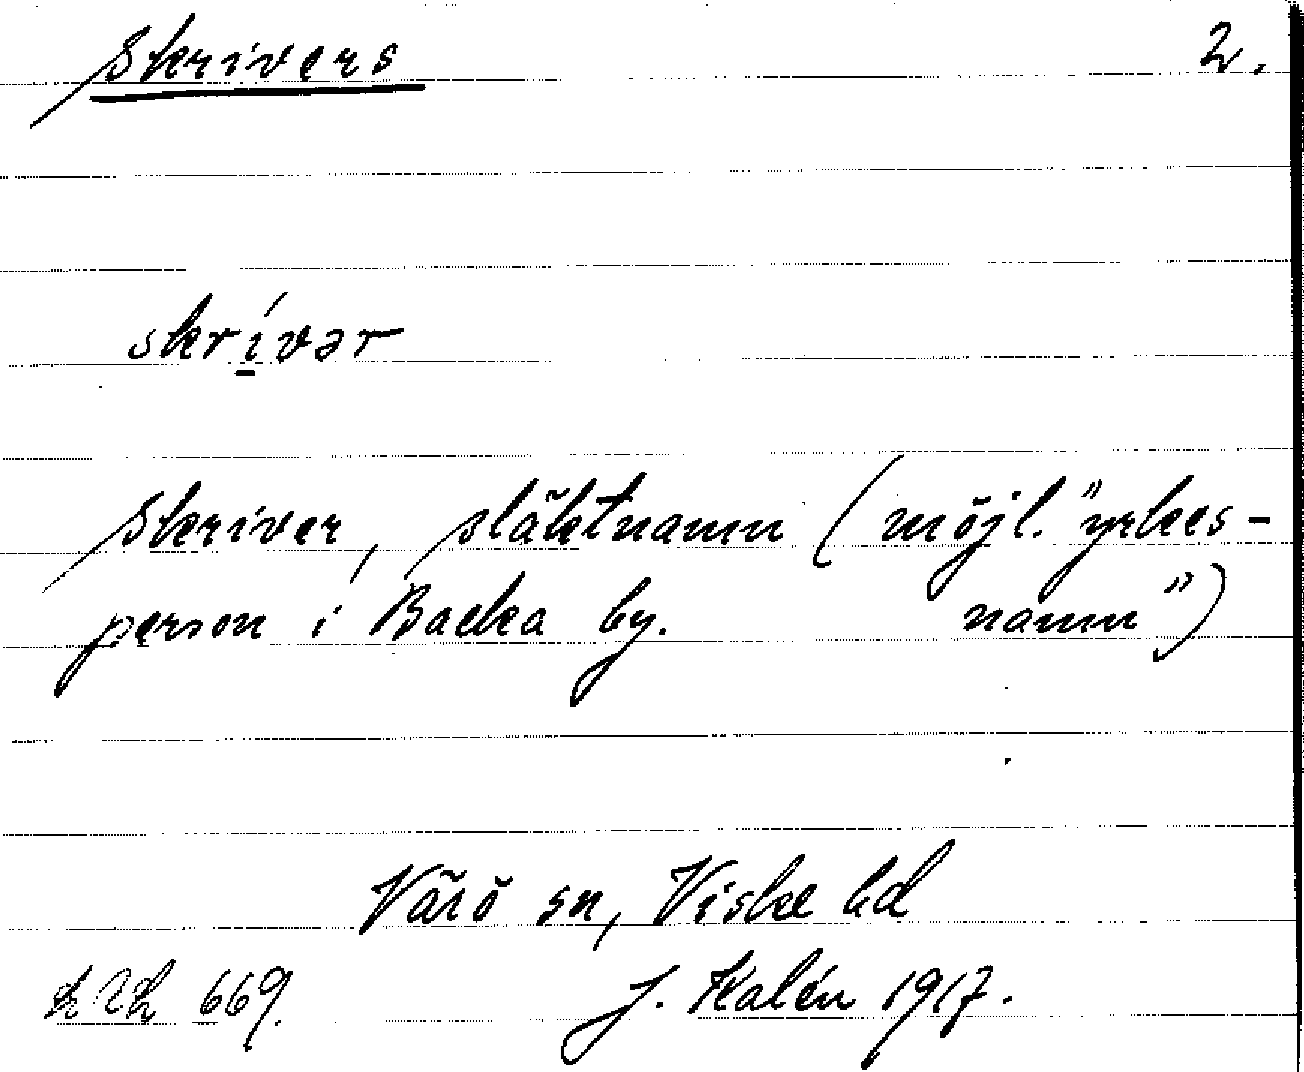 Skrivers 2.
skrívər
Skriver, släktnamn (möjl. "yrkes-
person i Backa by. namn")
Värö sn, Viske hd
669. J. Kalén 1917.